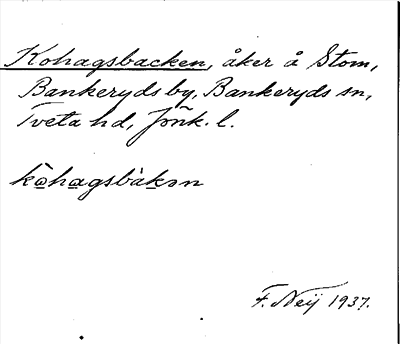 Kohagsbacken, åker å Stom,
Bankeryds by, Bankeryds sn,
Tveta hd, Jönk. l.
kȯ̀hagsbàkən
F. Neij 1937.